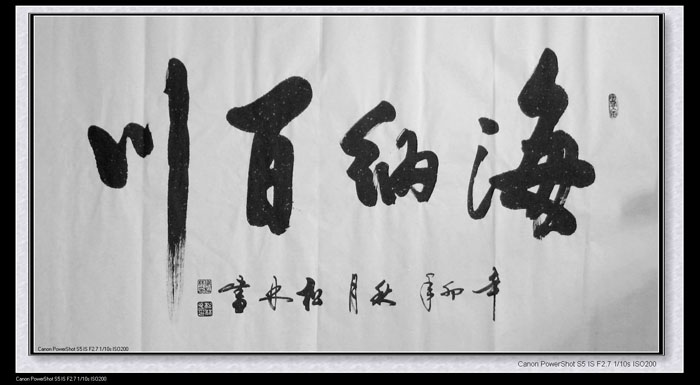 海纳百川
辛卯年秋月松書
Canon PowerShot S5 IS F2.7 1/10s ISO200
Canon PowerShot S5 IS F2.7 1/10s ISO200
Canon PowerShot S5 IS F2.7 1/10s ISO200